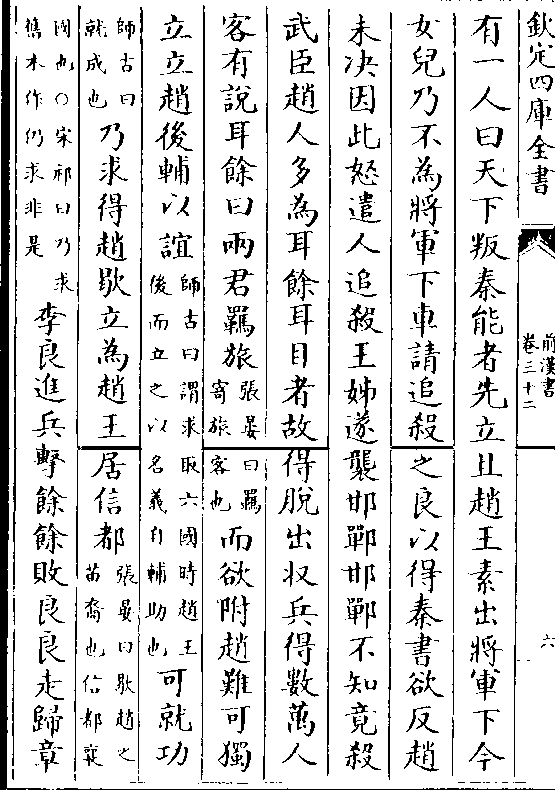 欽定四庫全書
前漢書
卷三十二
六
有一人曰天下叛秦能者先立且趙王素出將軍下今
女兒乃不為將軍下車請追殺之良以得秦書欲反趙
未决因此怒遣人追殺王姊遂襲邯鄲邯鄲不知竟殺
武臣趙人多為耳餘耳目者故得脫出收兵得數萬人
客有說耳餘曰兩君羈旅張晏曰羈寄旅客也而欲附趙難可獨
立立趙後輔以誼師古曰謂求取六國時趙王後而立之以名義自輔助也可就功
師古曰就成也乃求得趙歇立為趙王居信都張晏曰歇趙之苗裔也信都襄
國也○宋祁曰乃求舊本作仍求非是李良進兵擊餘餘敗良良走歸章